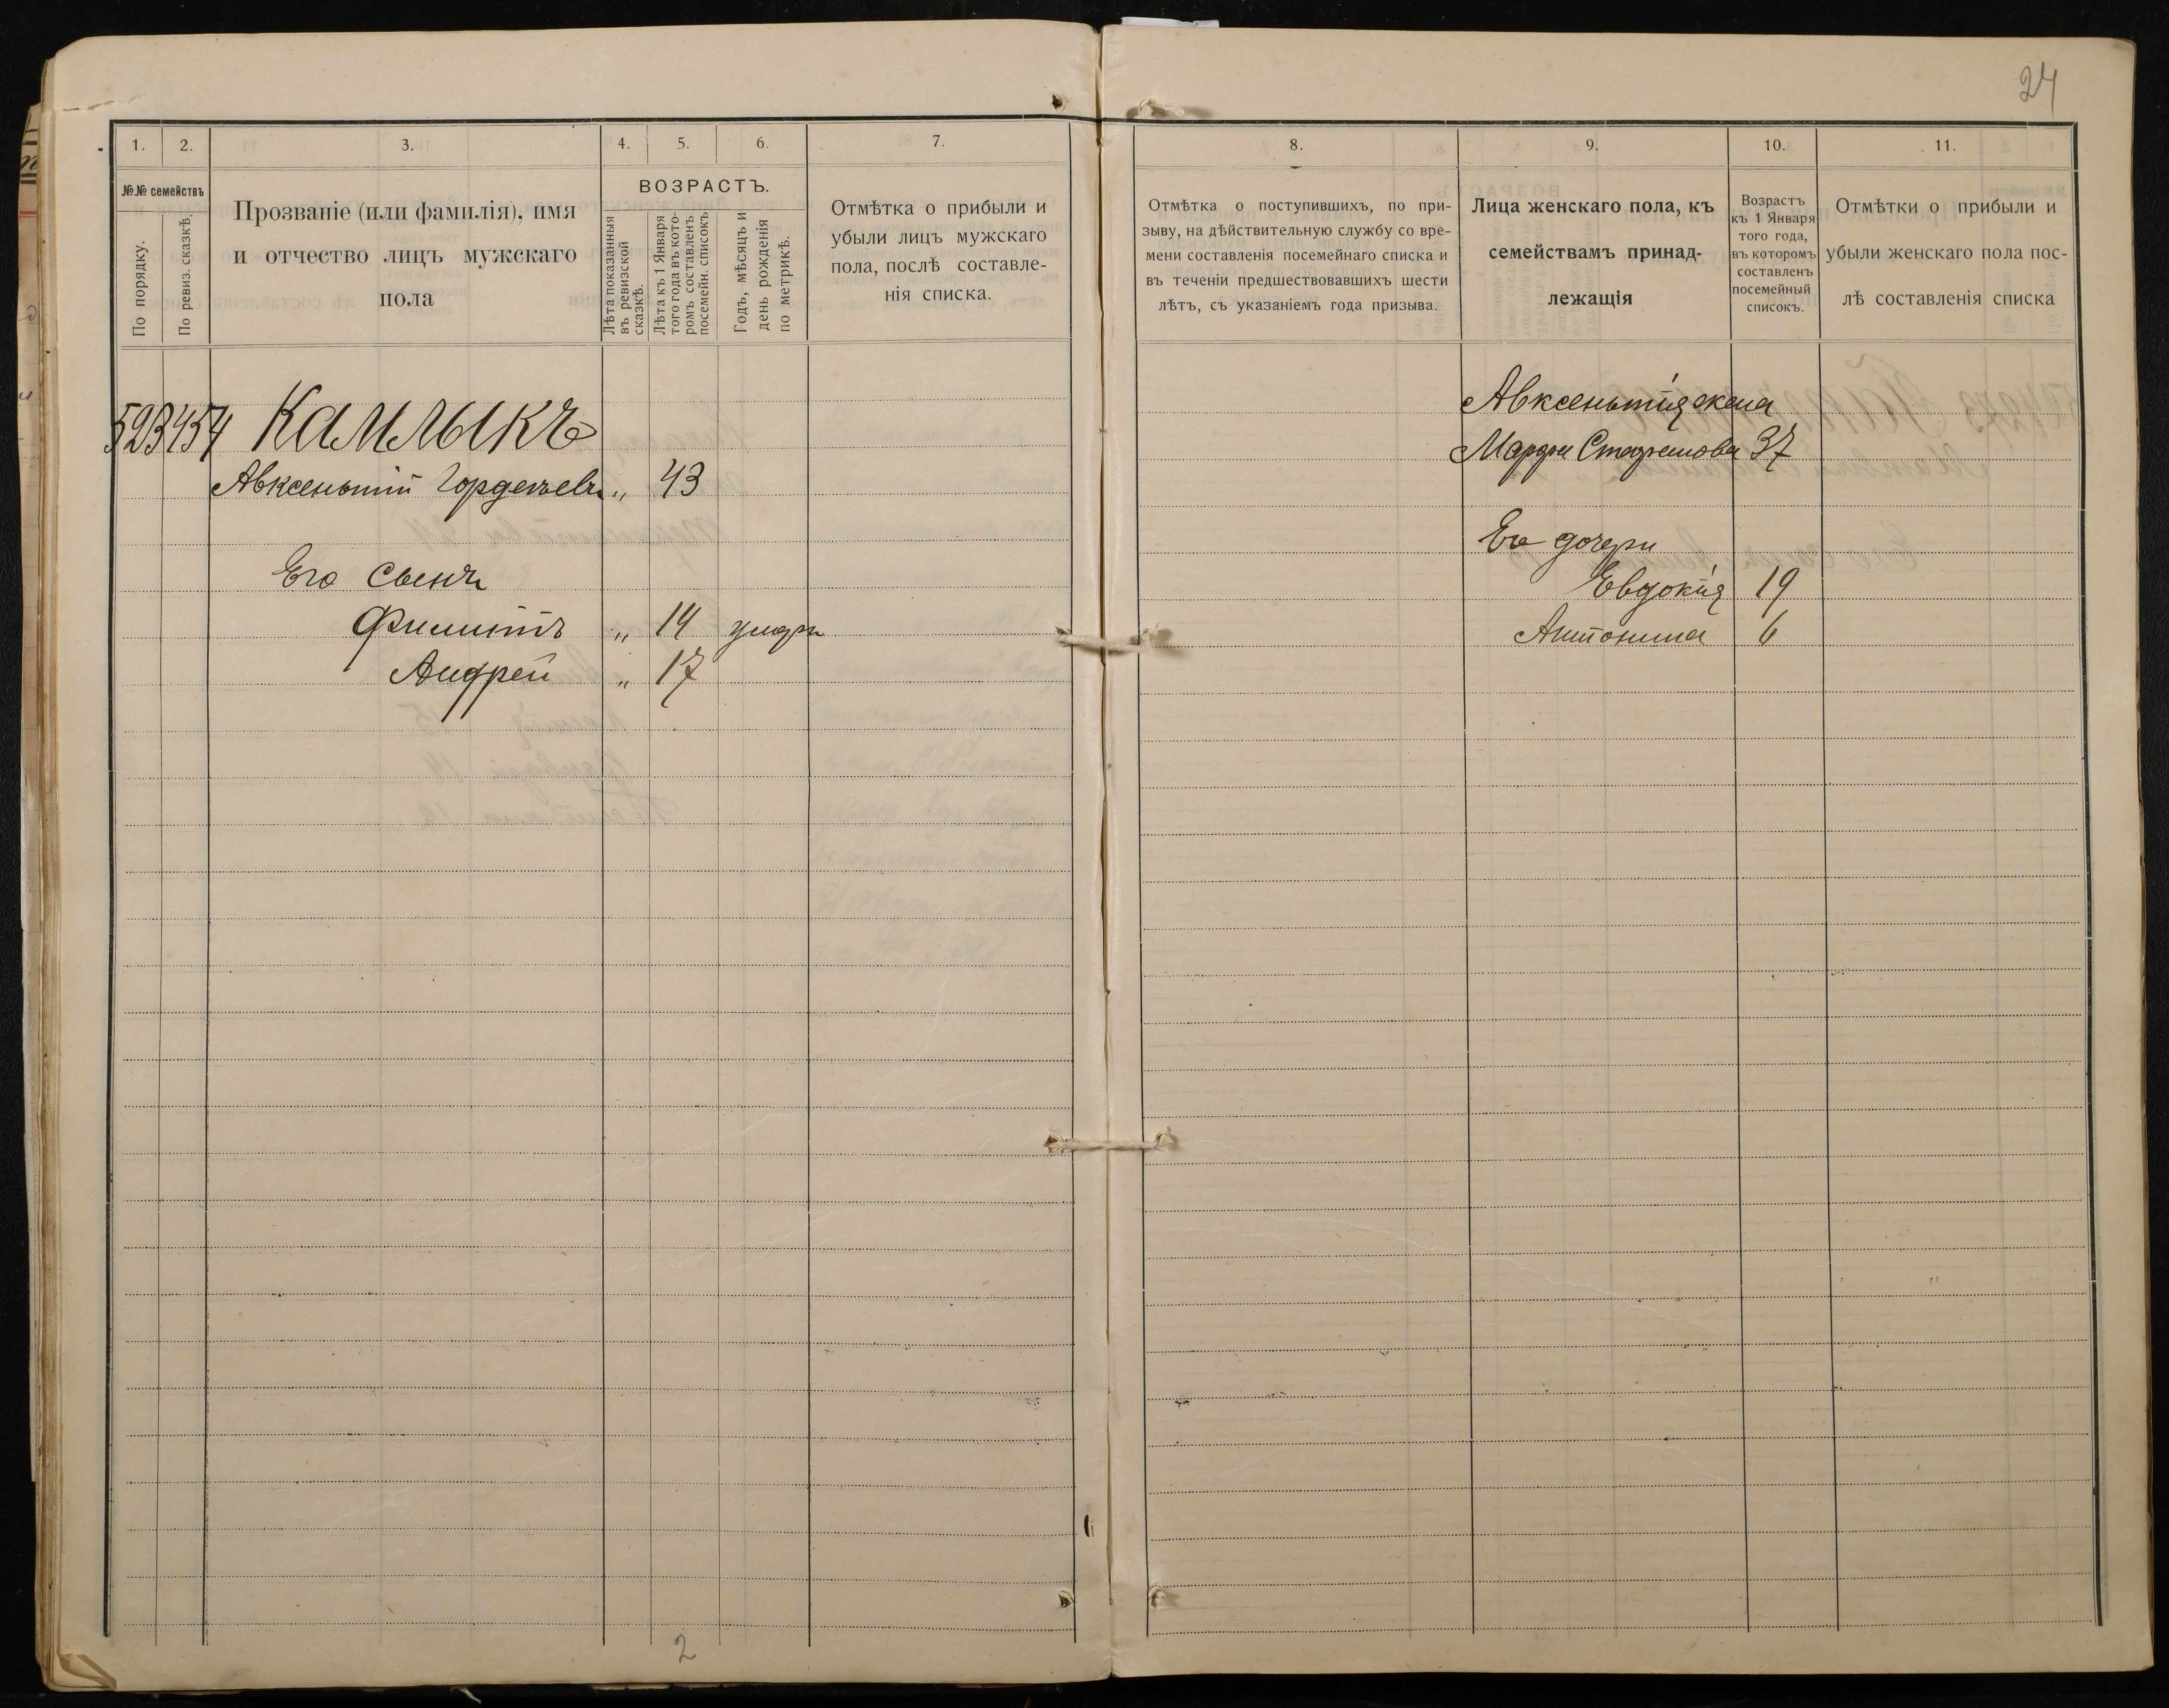 24
1. 2. 3. 4. 5. 6. 7.
№№ семействъ
По порядку.
По ревиз. сказкѣ.
Прозваніе (или фамилія), имя
и отчество лицъ мужскаго
пола
ВОЗРАСТЪ.
Лѣта показанныя
въ ревизской
сказкѣ.
Лѣта къ 1 Января
того года въ кото-
ромъ составленъ
посемейн. списокъ
Годъ, мѣсяцъ и
день рожденія
по метрикѣ.
Отмѣтка о прибыли и
убыли лицъ мужскаго
пола, послѣ составле-
нія списка.
523 454 Калмыкъ
Авксентій Гордеевъ „ 43
Его сынъ
Филиппъ „ 14 умеръ
Андрей „ 17
2
8. 9. 10. 11.
Отмѣтка о поступившихъ, по при-
зыву, на дѣйствительную службу со вре-
мени составленія посемейнаго списка и
въ теченіи предшествовавшихъ шести
лѣтъ, съ указаніемъ года призыва.
Лица женскаго пола, къ
семействамъ принад-
лежащія
Возрастъ
къ 1 Января
того года,
въ которомъ
составленъ
посемейный
списокъ.
Отмѣтки о прибыли и
убыли женскаго пола пос-
лѣ составленія списка
Авксентія жена
Марфа Стефанова 37
Его дочери
Евдокія 19
Антонина 6